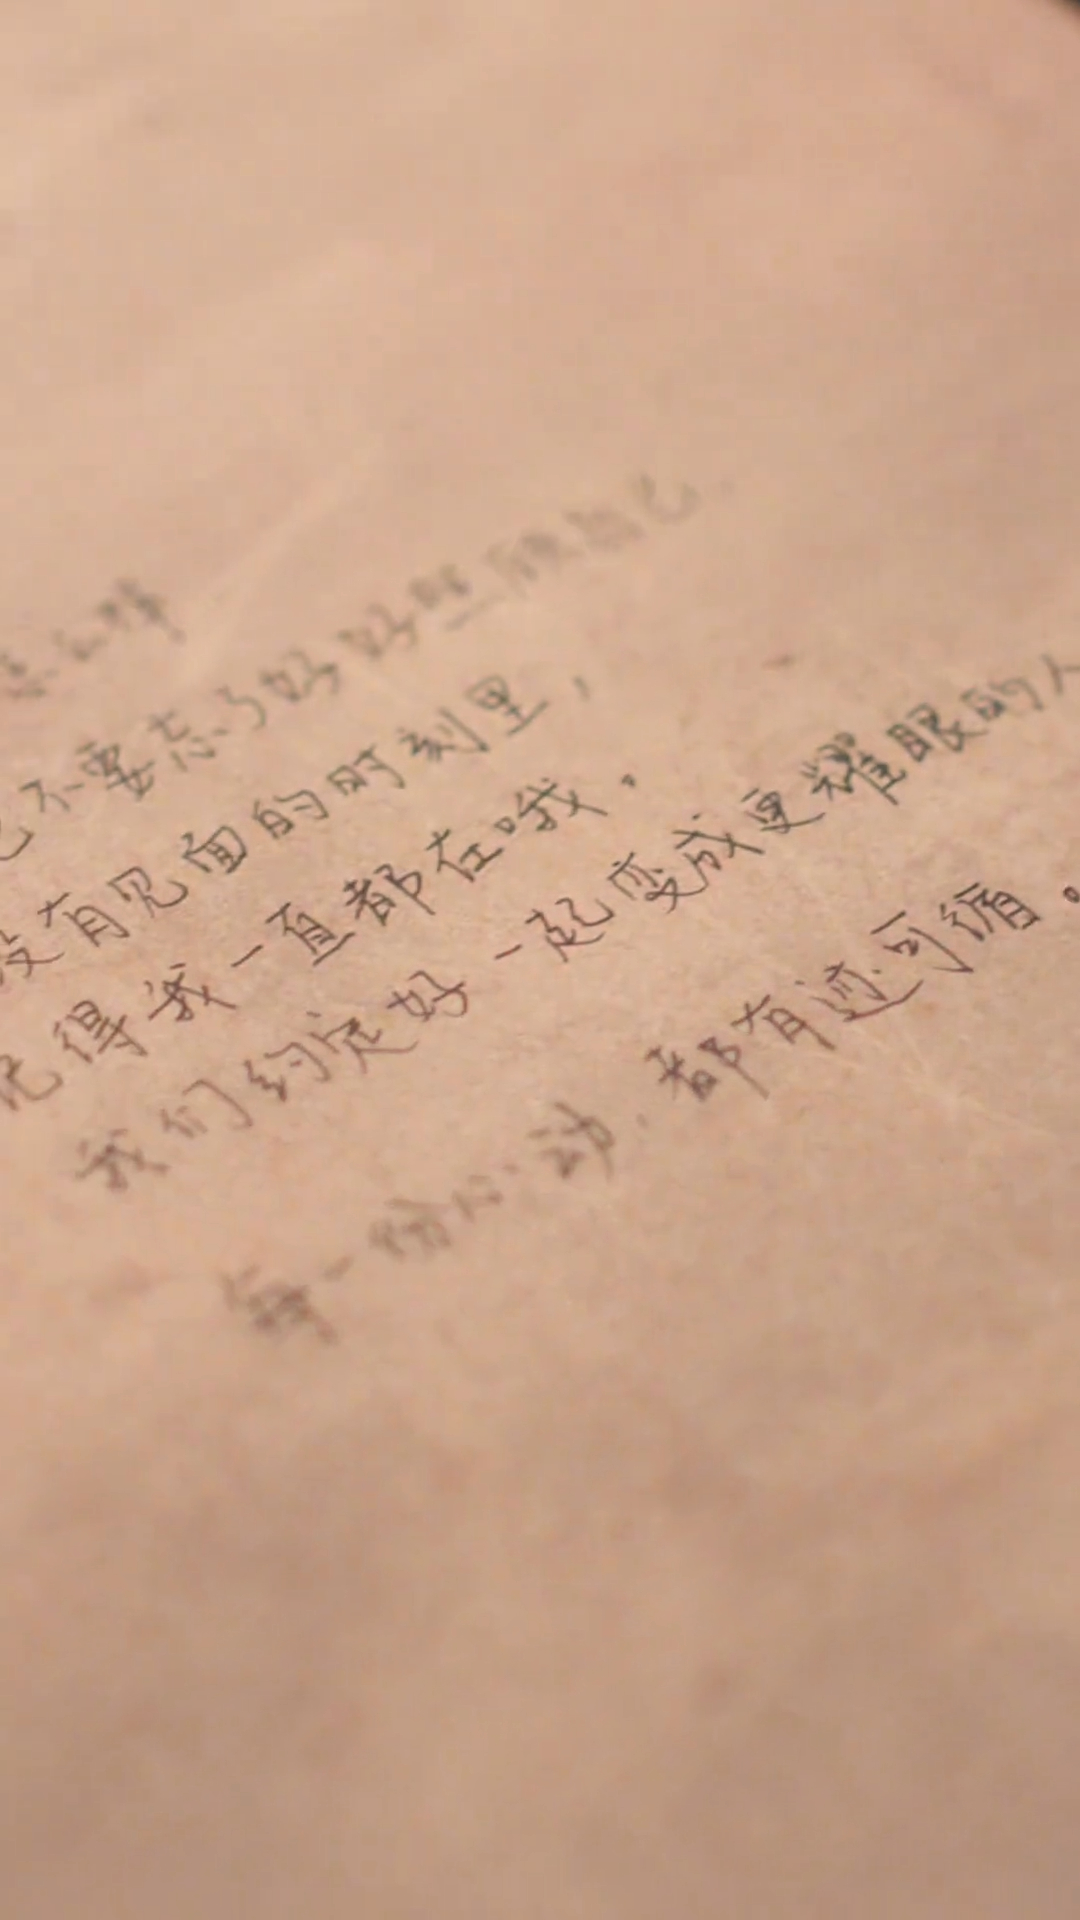 怎么样
也不要忘了好好照顾自己.
没有见面的时刻里,
记得我一直都在哦.
我们约定好一起变成更耀眼的人
每一份心动.都有迹可循。